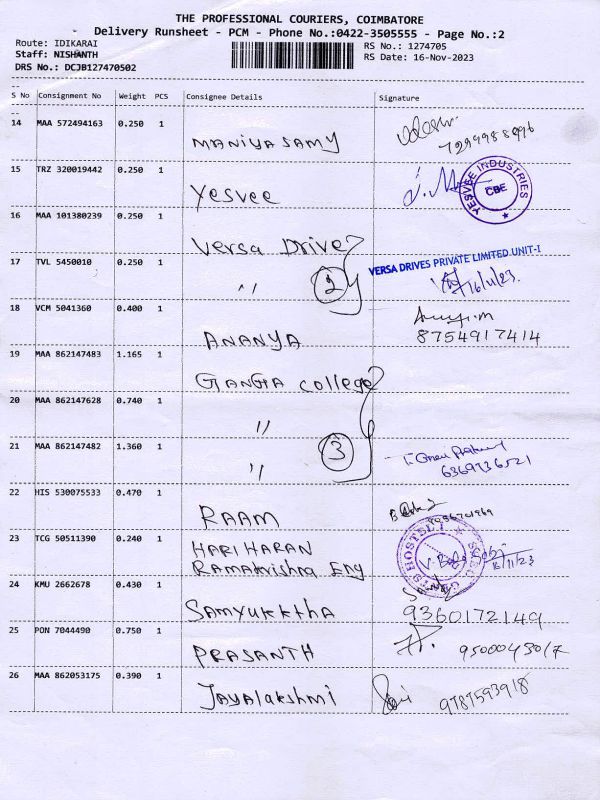 THE PROFESSIONAL COURIERS, COIMBATORE
Delivery Runsheet - PCM - Phone No.:0422-3505555 - Page No.:2
Route: IDIKARAI
RS No.: 1274705
Staff: NISHANTH
RS Date: 16-Nov-2023
DRS No.: DCJB127470502
S No Consignment No Weight PCS Consignee Details Signature
14 MAA 572494163 0.250 1
Maniyasamy
7299988096
15 TRZ 320019442 0.250 1
Yesvee
YESVEE INDUSTRIES
CBE
16 MAA 101380239 0.250 1
Versa Drive
17 TVL 5450010 0.250 1
VERSA DRIVES PRIVATE LIMITED.UNIT-I
" 2
16/11/23.
18 VCM 5041360 0.400 1
ANANYA
8754917414
19 MAA 862147483 1.165 1
GANGA college
20 MAA 862147628 0.740 1
"
21 MAA 862147482 1.360 1
" 3
6369736521
22 HIS 530075533 0.470 1
RAAM
23 TCG 50511390 0.240 1
HARIHARAN
Ramakrishna Eng
16/11/23
24 KMU 2662678 0.430 1
Samyukktha
9360172149
25 PON 7044490 0.750 1
PRASANTH
26 MAA 862053175 0.390 1
Jayalakshmi
9787593918